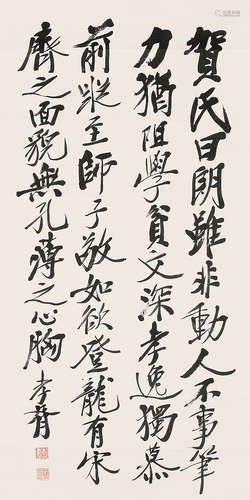 賀氏日朗雖非動人不事筆
力猶阻學貧文深孝逸獨慕
前蹤至師子敬如欲登龍有宋
齊之面貌無孔薄之心胸 李膺